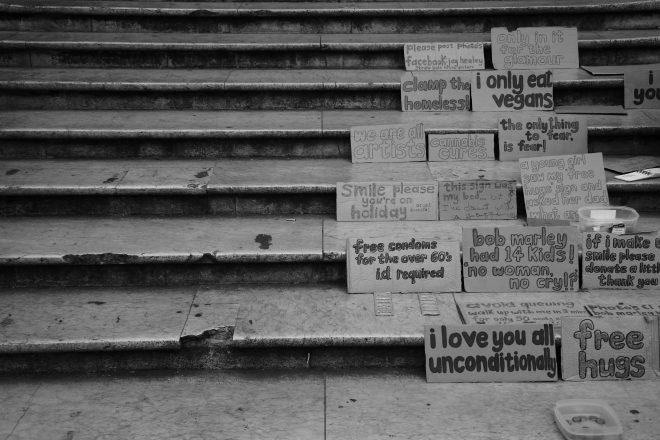 please post photos
facebook.jay healey
only in it
for the
glamour
clamp the
homeless!
i only eat
vegans
i
you
we are all
artists
cannabis
cures
the only thing
to fear,
is fear!
a young girl
saw my free
hugs sign and
asked her dad
what are
Smile please
you're on
holiday
this sign was
my bed
free condoms
for the over 60's
i.d required
bob marley
had 14 kids!
'no woman,
no cry!?
if i make u
smile please
donate a little
thank you
avoid queuing
walk up with me in 3 min
for only 50
i love you all
unconditionally
free
hugs